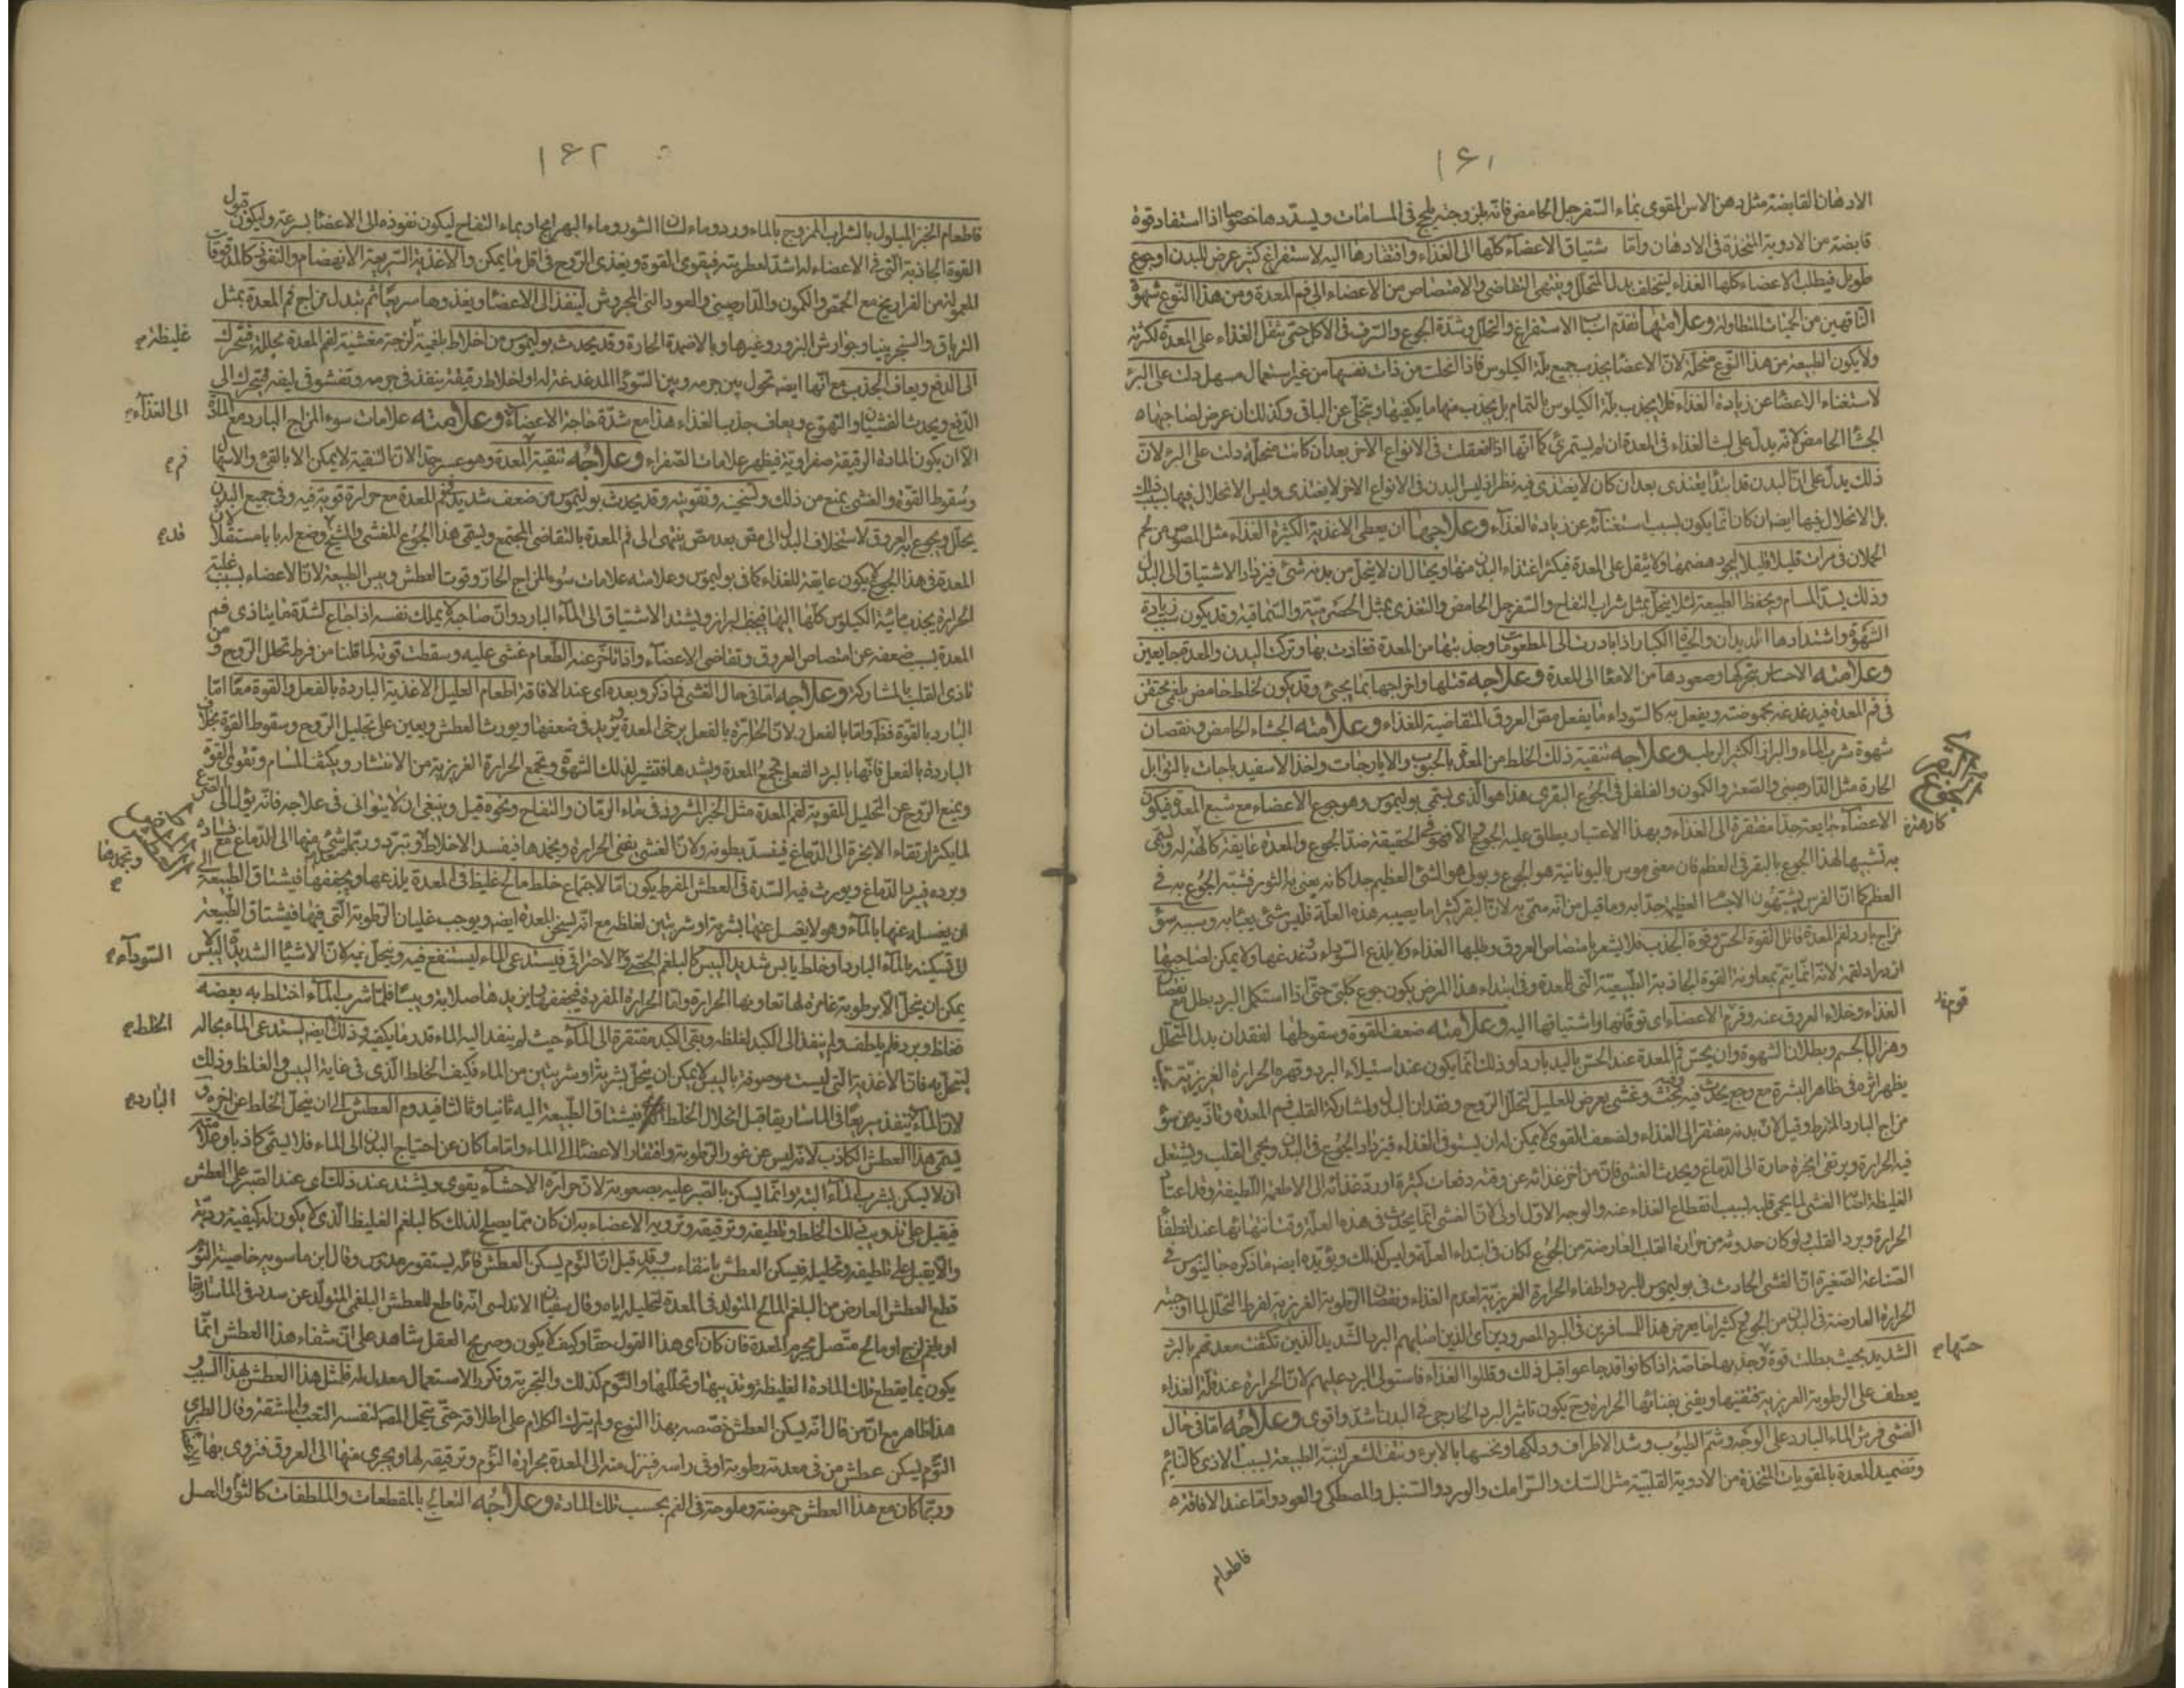 ١٦١
الادهان القابضة مثل دهن الاس المقوى بماء السفرجل الحامض فانه بلزوجته يلج فى المسامات ويسددها خصوصا اذا استفاد قوة
قابضة من الادوية المتخذة فى الادهان واما شتياق الاعضاء كلها الى الغذاء وافتقارها اليه لاستفراغ كثير عرض للبدن اوجوع
طويل فيطلب الاعضاء كلها الغذاء ليتخلف بدل المتحلل وينتهى التقاضى والامتصاص من الاعضاء الى فم المعدة ومن هذا النوع شهوة
الناقهين من الحميات المتطاولة وعلامتها تقدم اسباب الاستفراغ والتحلل وشدة الجوع والسرف فى الاكل حتى يثقل الغذاء على المعدة لكثرته
ولايكون الطبيعة من هذا النوع منحلة لان الاعضا يجذب جميع بلة الكيلوس فاذا انحلت من ذات نفسها من غير استعمال مسهل دلت على البرء
لاستغناء الاعضا عن زيادة الغذاء فلا يجذب بلة الكيلوس بالتمام بل يجذب منها ما يكفيها ويتخلى عن الباقى وكذلك ان عرض لصاحبها
الجشا الحامض لانه يدل على لبث الغذاء فى المعدة ان لم يستمرئ كما انها اذا انعقلت فى الانواع الاخر بعد ان كانت منحلة دلت على البرء لان
ذلك يدل على ان البدن قد ابتدأ يغتذى بعد ان كان لا يغتذى فيه نظر اذ ليس البدن فى الانواع الاخر لا يغتذى وليس الانحلال فيها بسبب ذلك
بل الانحلال فيها ايضا ان كان انما يكون بسبب استغنائه عن زيادة الغذاء وعلاجها ان يعطى الاغذية الكثيرة الغذاء مثل المصوص من لحم
الحملان فى مرات قليلا قليلا ليجود هضمها ولا يثقل على المعدة فيكثر اغتذاء البدن منها ويحتال ان لا يتحلل من بدنه شئ فيزداد الاشتياق الى البدل
وذلك بسد المسام ويحفظ الطبيعة لئلا ينحل بمثل شراب التفاح والسفرجل الحامض والتغذى بمثل الحصرمية والسماقية وقد يكون زيادة
الشهوة واشتدادها الديدان والحيات الكبار اذا بادرت الى المطعومات وجذبتها من المعدة فغاذت بها وترك البدن والمعدة جايعين
وعلامته الاحساس بتحركها وصعودها من الامعا الى المعدة وعلاجه قتلها واخراجها بما يجئ وقد يكون لخلط حامض بلغمى محتقن
فى فم المعدة فيدغدغه بحموضته ويفعل به كالسوداء ما يفعل مص العروق المتقاضية للغذاء وعلامته الجشاء الحامض ونقصان
شهوة شرب الماء والبراز الكثير الرطب وعلاجه تنقية ذلك الخلط من المعدة بالحبوب والايارجات واخذ الاسفيدباجات بالتوابل
الحارة مثل الدارصينى والصعتر والكمون والفلفل فى الجوع البقرى هذا هو الذى يسمى بوليموس وهو جوع الاعضاء مع شبع المعدة فيكون
الاعضاء جايعة جدا مفتقرة الى الغذاء وبهذا الاعتبار يطلق عليه الجوع والا فهو فى الحقيقة ضد الجوع والمعدة عايفة كارهة له ويسمى
به تشبيها لهذا الجوع بالبقر فى العظم فان معنى موس باليونانية هو الجوع وبولى هو الشئ العظيم جدا كانه يعنى به الثور فشبه الجوع به فى
العظم كما ان الفرس يشبهون الاجسا العظيم جدا به وما قيل من انه سمى به لان البقر كثيرا ما يصيبه هذه العلة فليس شئ يعتا به وسببه سؤ
مزاج بارد لفم المعدة قاتل القوة الحس وقوة الجذب فلا يشعر بامتصاص العروق وطلبها الغذاء ولا يلذع السوداء ودغدغتها ولا يمكن لصاحبها
ازدراد لقمة لانه انما يتم بمعاونة القوة الجاذبة الطبيعية التى للمعدة وفى ابتداء هذا المرض يكون جوع كلبى حتى اذا استكمل البرد بطل مع نقصان
الغذاء وخلاء العروق عنه وقرم الاعضاء اى توقانها واشتياقها اليه وعلامته ضعف القوة وسقوطها لفقدان بدل المتحلل
وهزال الجسم وبطلان الشهوة وان يحس فم المعدة عند الحس باليد باردا وذلك انما يكون عند استيلاء البرد وقهره الحرارة الغريزية
يظهر اثره فى ظاهر البشرة مع وجع يحدث فيه وغشى يعرض للعليل لتحلل الروح وفقدان البدل ولمشاركة القلب فم المعدة وتاذيه من سؤ
مزاج البارد المفرط وقيل لان بدنه مفتقر الى الغذاء ولضعف القوى لا يمكن له ان يستوفى الغذاء فيزداد الجوع فى البدن ويحمى القلب ويشتعل
فيه الحرارة ويرتقى ابخرة حارة الى الدماغ ويحدث الغشى فان من اخر غذائه عن وقته دفعات كثيرة او رد غذائه الى الاطعمة اللطيفة وقد اعتاد
الغليظة اصابه الغشى لما يحمى قلبه لسبب انقطاع الغذاء عنه والوجه الاول اولى لان الغشى انما يحدث فى هذه العلة وقت انتهائها عند انطفا
الحرارة وبرد القلب ولو كان حدوثه من حرارة القلب العارضة من الجوع لكان فى ابتداء العلة وليس كذلك ويؤيده ايضا ما ذكره جالينوس فى
الصناعة الصغيرة ان الغشى الحادث فى بوليموس للبرد وانطفاء الحرارة الغريزية لعدم الغذاء ونقصان الرطوبة الغريزية لفرط التحلل لما اوجبته
الحرارة العارضة فى البدن من الجوع وكثيرا ما يعرض هذا للمسافرين فى البرد المصرودين اى الذين اصابهم البرد الشديد الذين تكثفت معدتهم بالبرد
الشديد بحيث بطلت قوة وجذبها خاصة اذا كانوا قد جاعوا قبل ذلك وقللوا الغذاء فاستولى البرد عليهم لان الحرارة عند قلة الغذاء
يعطف على الرطوبة الغريزية فتفنيها ويفنى بفنائها الحرارة وح يكون تاثير البرد الخارجى فى البدن اشد واقوى وعلاجه اما فى حال
الغشى فرش الماء البارد على الوجه وشم الطيوب وشد الاطراف ودلكها ونخسها بالابرة ونتف الشعر لتنبه الطبيعة لسبب الاذى كالنائم
وتضميد المعدة بالمقويات المتخذة من الادوية القلبية مثل السك والرامك والورد والسنبل والمصطكى والعود واما عند الافاقة
فاطعام
الجوع البقرى
كارهة
حتها م
١٦٢
فاطعام الخبز المبلول بالشراب الممزوج بالماء ورد وماء لسان الثور وماء البهرامج او بماء التفاح ليكون نفوذه الى الاعضا بسرعة وليكون قبول
القوة الجاذبة التى فى الاعضاء له اشد لعطريته فيقوى القوة ويغذى الروح فى اقل ما يمكن والاغذية السريعة الانهضام والنفوذ كالمدقوقات
المعمولة من الفراريج مع الحمص والكمون والدارصينى والعود النى المجروش لينفذ الى الاعضا ويغذوها سريعا ثم تبدل مزاج فم المعدة بمثل
الترياق والسنجرينيا وجوارش البزور وغيرها وبالاضمدة الحارة وقد يحدث بوليموس من اخلاط بلغمية لزجة مغشية لفم المعدة مجللة فتحرك
الى الدفع ويعاف الجذب مع انها ايضا تحول بين جرمه وبين السودا المدغدغة له او اخلاط رقيقة ينفذ فى جرمه وتفشو فى ليفه فيتحرك الى
الدفع ويحدث الغشيان والتهوع ويعاف جذب الغذاء هذا مع شدة حاجة الاعضاء وعلامته علامات سوء المزاج البارد مع المادة
الا ان يكون المادة الرقيقة صفراوية فيظهر علامات الصفراء وعلاجه تنقية المعدة وهو عسر جدا لان التنقية لا يمكن الا بالقئ والاسهال
وسقوط القوة والغشى يمنع من ذلك وتسخينه وتقويته وقد يحدث بوليموس من ضعف شديد لفم المعدة مع حرارة قوية فيه وفى جميع البدن
يحلل ويجوع به العروق لاستخلاف البدل الى مص بعد مص ينتهى الى فم المعدة بالتقاضى المجتمع ويسمى هذا الجوع المغشى والشيخ وضع له بابا مستقلا لان
المعدة فى هذا الجوع لا يكون عايفة للغذاء كما فى بوليموس وعلامته علامات سوء المزاج الحار وقوة العطش ويبس الطبيعة لان الاعضاء بسبب غلبة
الحرارة يجذب مائية الكيلوس كلها اليها فيجف البراز ويشتد الاشتياق الى الماء البارد وان صاحبه لا يملك نفسه اذا جاع لشدة ما يتاذى فم
المعدة بسبب ضعفه عن امتصاص العروق وتقاضى الاعضاء واذا تاخر عنه الطعام غشى عليه وسقطت قوته لما قلنا من فرط تحلل الروح ومن
تاذى القلب بالمشاركة وعلاجه اما فى حال الغشى فما ذكر وبعده اى عند الافاقة اطعام العليل الاغذية الباردة بالفعل والقوة معا اما
البارد بالقوة فظ واما بالفعل فلان الحارة بالفعل يرخى المعدة ويزيد فى ضعفها ويورث العطش ويعين على تحليل الروح وسقوط القوة بخلاف
الباردة بالفعل فانها بالبرد الفعلى تجمع المعدة ويشدها فتثير لذلك الشهوة وتجمع الحرارة الغريزية من الانتشار ويكثف المسام وتقوى القوة
ويمنع الروح عن التحليل المقوية لفم المعدة مثل الخبز المثرود فى ماء الرمان والتفاح ونحوه قيل وينبغى ان لا يتوانى فى علاجه فانه يؤل الى الصرع
لما يكثر ارتقاء الابخرة الى الدماغ فينسد بطونه ولان الغشى يفنى الحرارة ويخمدها فيفسد الاخلاط ويبرد وربما شئ منها الى الدماغ مع فساده
وبرده فيرد الدماغ ويورث فيه السدة فى العطش المفرط يكون اما لاجتماع خلط مالح غليظ فى المعدة يلذعها ويجففها فيشتاق الطبيعة الى
ان يغسل عنها بالماء وهو لا يغسل عنها بشربة او شربتين لغلظه مع انه يسخن المعدة ايضا ويوجب غليان الرطوبة التى فيها فيشتاق الطبيعة
الى تسكينه بالماء البارد او خلط يابس شديد اليبس كالبلغم الجصى والاحتراقى فيستدعى الماء ليستنقع فيه وينحل نميه كان الاشيا الشديدة اليبس لا
يمكن ان ينحل الا برطوبة غامرة لها تعاونها الحرارة واما الحرارة المفردة فيجففها ويزيدها صلابة ويبسا فلما شرب الماء اختلط به بعضه
فغلظ وبرد فلم يلطف ولم ينفذ الى الكبد لغلظه وبقى الكبد مفتقرة الى الماء حيث لم ينفذ اليه الماء قدر ما يكفيه وذلك ايضا يستدعى الماء بحاله
لينحل به فان الاغذية التى ليست موصوفة باليبس لا يمكن ان ينحل بشربة او شربتين من الماء فكيف الخلط الذى فى غاية اليبس والغلظ وذلك
لان الماء ينفذ سريعا فى الماساريقا قبل انحلال الخلط فيشتاق الطبيعة اليه ثانيا وثالثا فيدوم العطش الى ان ينحل الخلط عن اخره و
يسمى هذا العطش الكاذب لانه ليس عن غور الرطوبة وافتقار الاعضا الى الماء واما ما كان عن احتياج البدن الى الماء فلا يسمى كاذبا وعلامته
ان لا يسكن بشرب الماء البتة وانما يسكن بالصبر عليه بصعوبة لان حرارة الاحشاء يقوى ويشتد عند ذلك اى عند الصبر على العطش
فيقبل على تذويب ذلك الخلط وتلطيفه وترقيقه وتروية الاعضاء به ان كان مما يصلح لذلك كالبلغم الغليظ الذى لا يكون له كيفية ردية
والا يقبل على تلطيفه وتحليله فيسكن العطش بانتفاء سببه وقد قيل ان الثوم يسكن العطش قائله يستقورميدس وقال ابن ماسويه خاصية الثوم
قطع العطش العارض من البلغم المالح المتولد فى المعدة لتحليله اياه وقال سفيان الاندلسى انه قاطع للعطش البلغمى المتولد عن سدد فى الماساريقا
او بلغم لزج او مالح متصل بجرم المعدة فان كان اى هذا القول حقا وكيف لا يكون وصريح العقل شاهد على ان شفاء هذا العطش انما
يكون بما يقطع تلك المادة الغليظة ويذيبها ويحللها والثوم كذلك والتجربة وتكرر الاستعمال معدل له فلمثل هذا العطش بهذا السبب و
هذا ظاهر مع ان من قال انه يسكن العطش خصصه بهذا النوع ولم يترك الكلام على اطلاقه حتى يتحمل المص لنفسه التعب والمشقة وقال الطبرى
الثوم يسكن عطش من فى معدته رطوبة او فى راسه فينزل منه الى المعدة بحرارة الثوم وترقيقه لها ويجرى منها الى العروق فتروى بها
وربما كان مع هذا العطش حموضة وملوحة فى الفم بحسب تلك المادة وعلاجه التعالج بالمقطعات والملطفات كالثوم والعسل
غليظة م
الى الغذاء م
فم م
قد م
العطش المفرط
السوداء م
الخلط م
البارد م